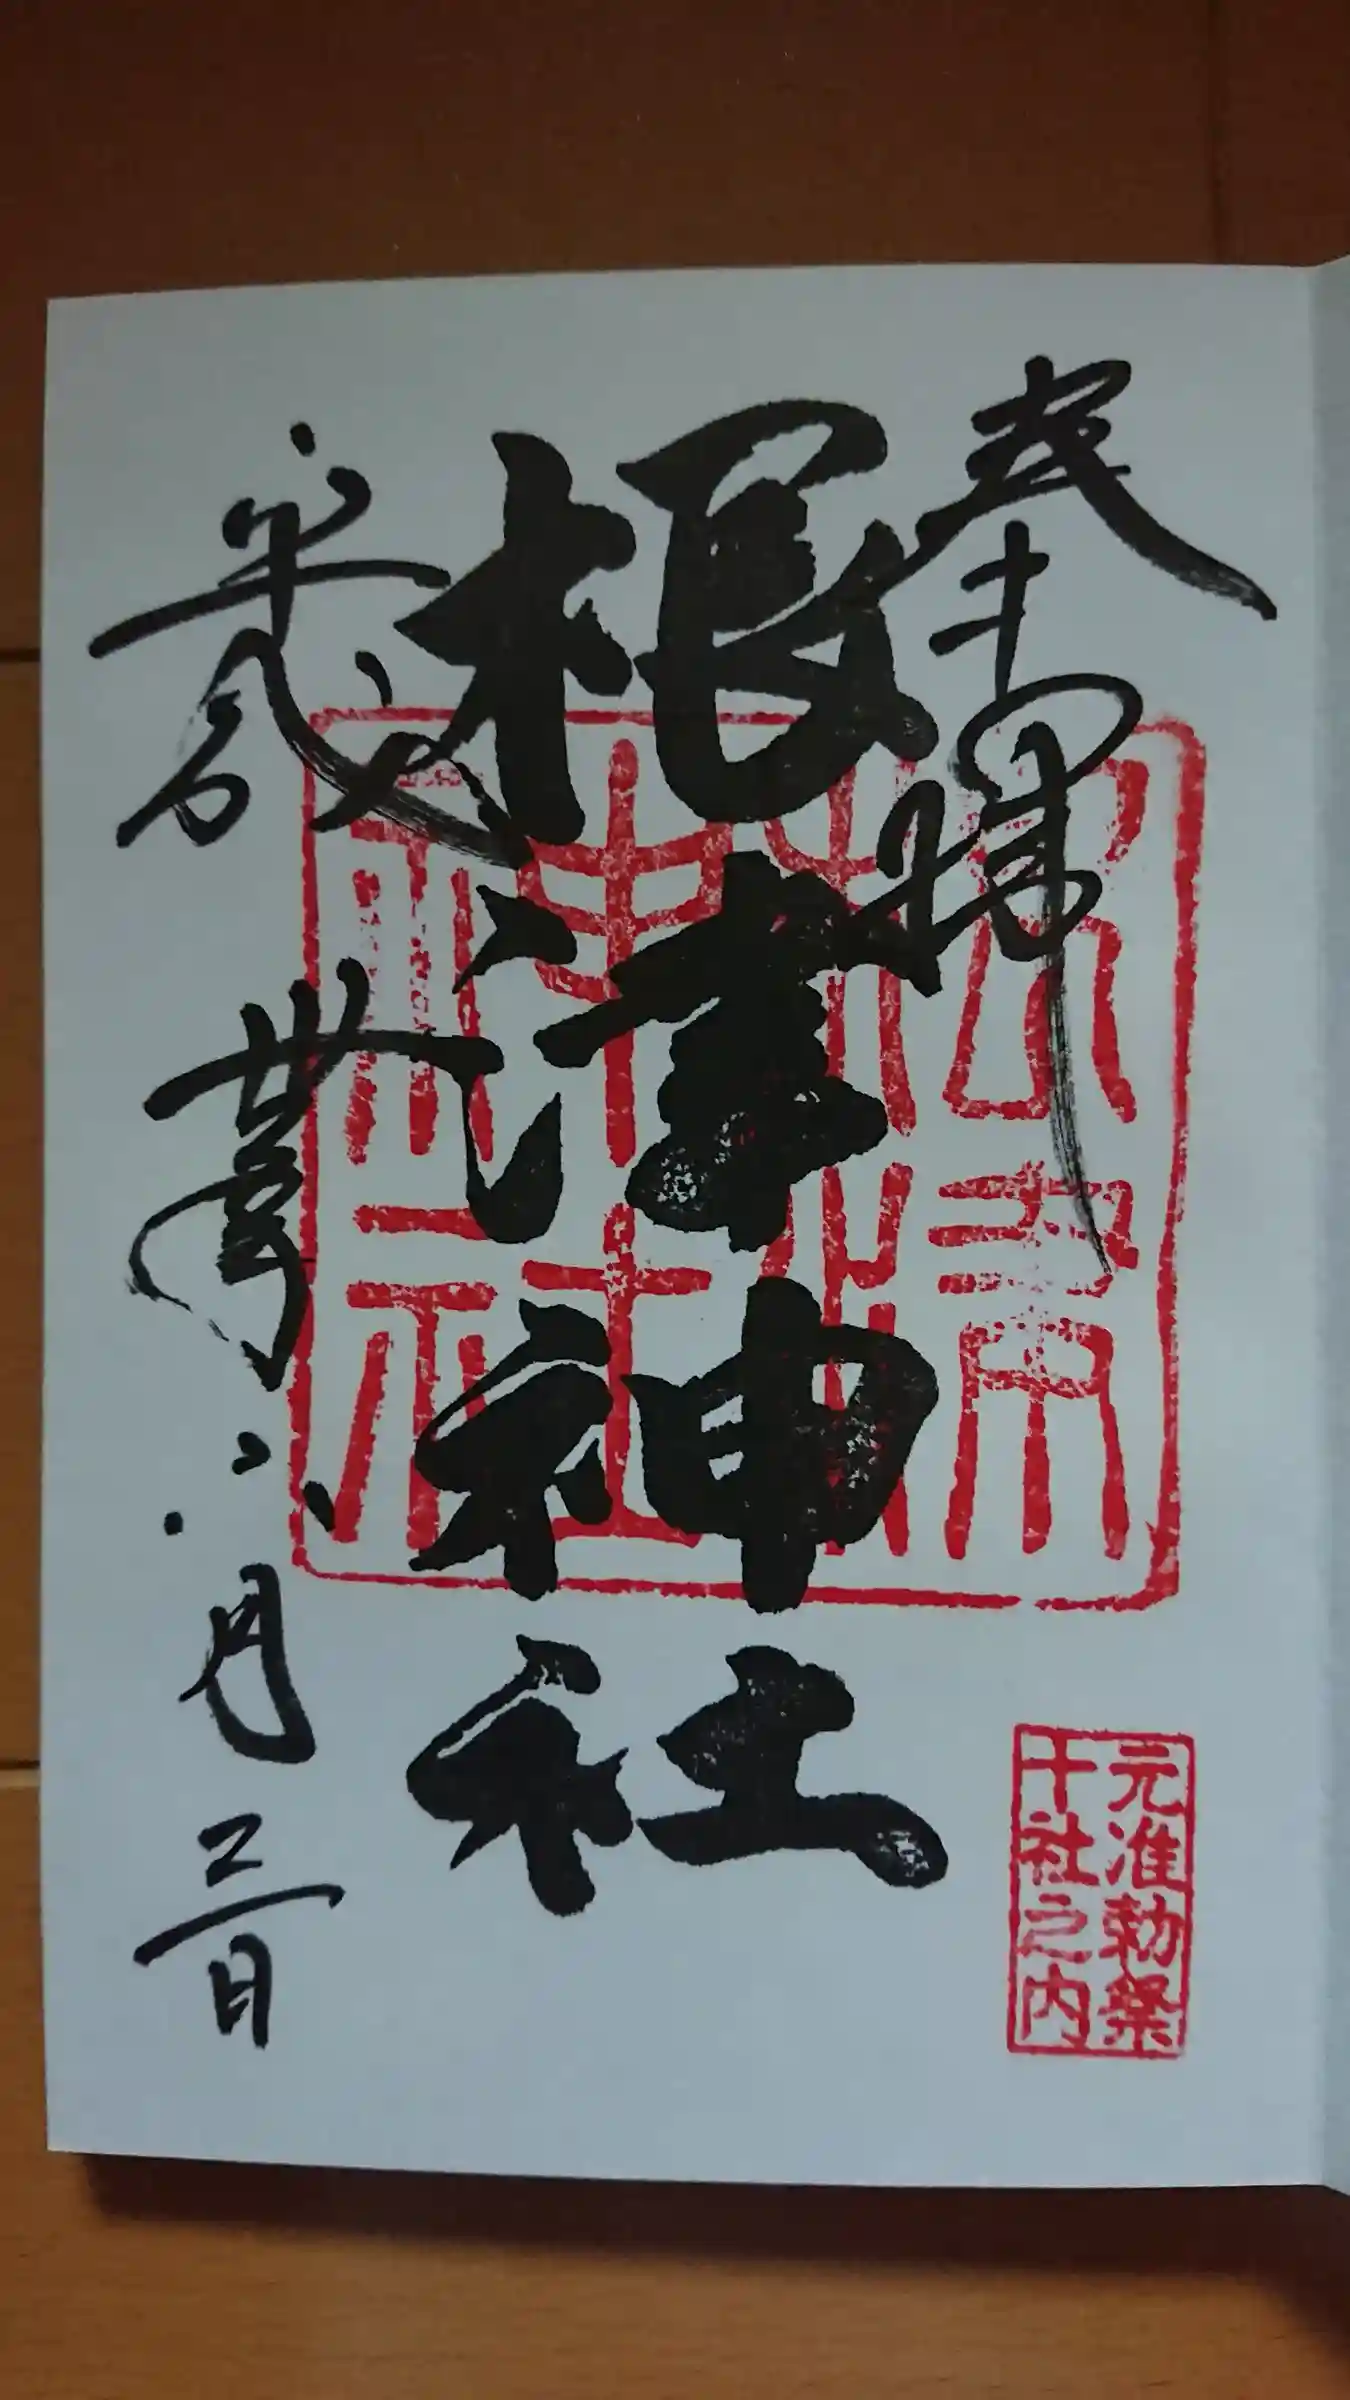 奉拝
根津神社
平成丗年八月三日
根津
神社
元准勅祭
十社之内